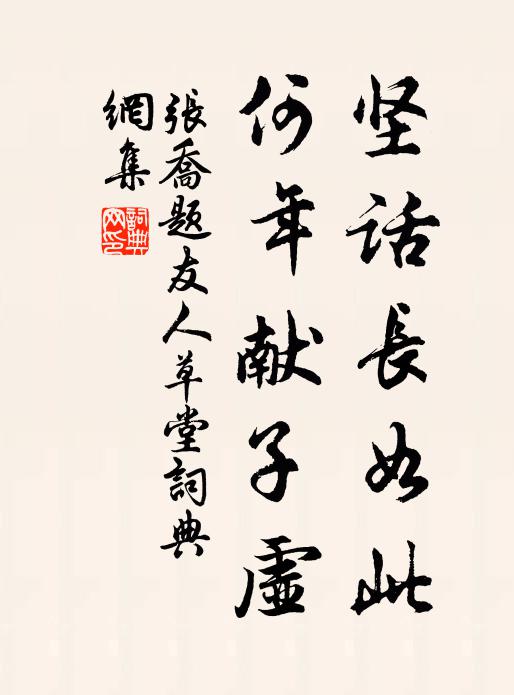 坚话長如此
何年献子虚
張喬題友人草堂詞典
網集
詞典
网印